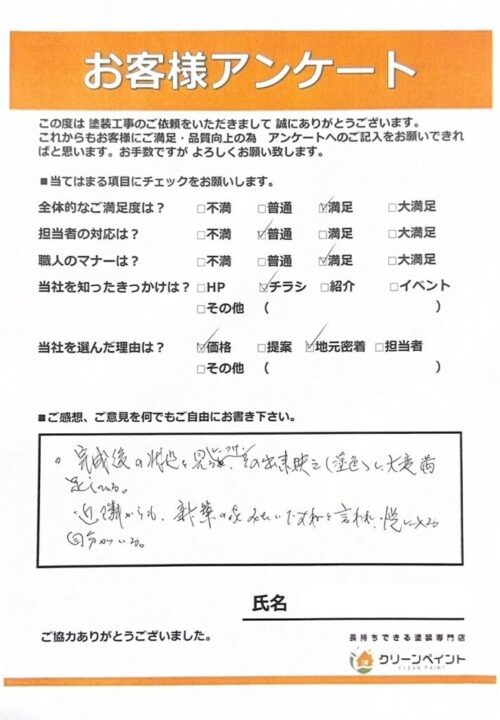 お客様アンケート
この度は 塗装工事のご依頼をいただきまして 誠にありがとうございます。
これからもお客様にご満足・品質向上の為 アンケートへのご記入をお願いできれ
ばと思います。お手数ですが よろしくお願い致します。
■当てはまる項目にチェックをお願いします。
全体的なご満足度は？ □不満 □普通 ☑満足 □大満足
担当者の対応は？ □不満 ☑普通 □満足 □大満足
職人のマナーは？ □不満 □普通 ☑満足 □大満足
当社を知ったきっかけは？ □HP ☑チラシ □紹介 □イベント
□その他 （ ）
当社を選んだ理由は？ ☑価格 □提案 ☑地元密着 □担当者
□その他 （ ）
■ご感想、ご意見を何でもご自由にお書き下さい。
。完成後の状態を見 その出来映え(塗色)に大変満
足している。
近隣からも、新築の家みたいですねと言われ、悦に入る
自分がいる。
氏名
ご協力ありがとうございました。
長持ちできる塗装専門店
クリーンペイント
CLEAN PAINT